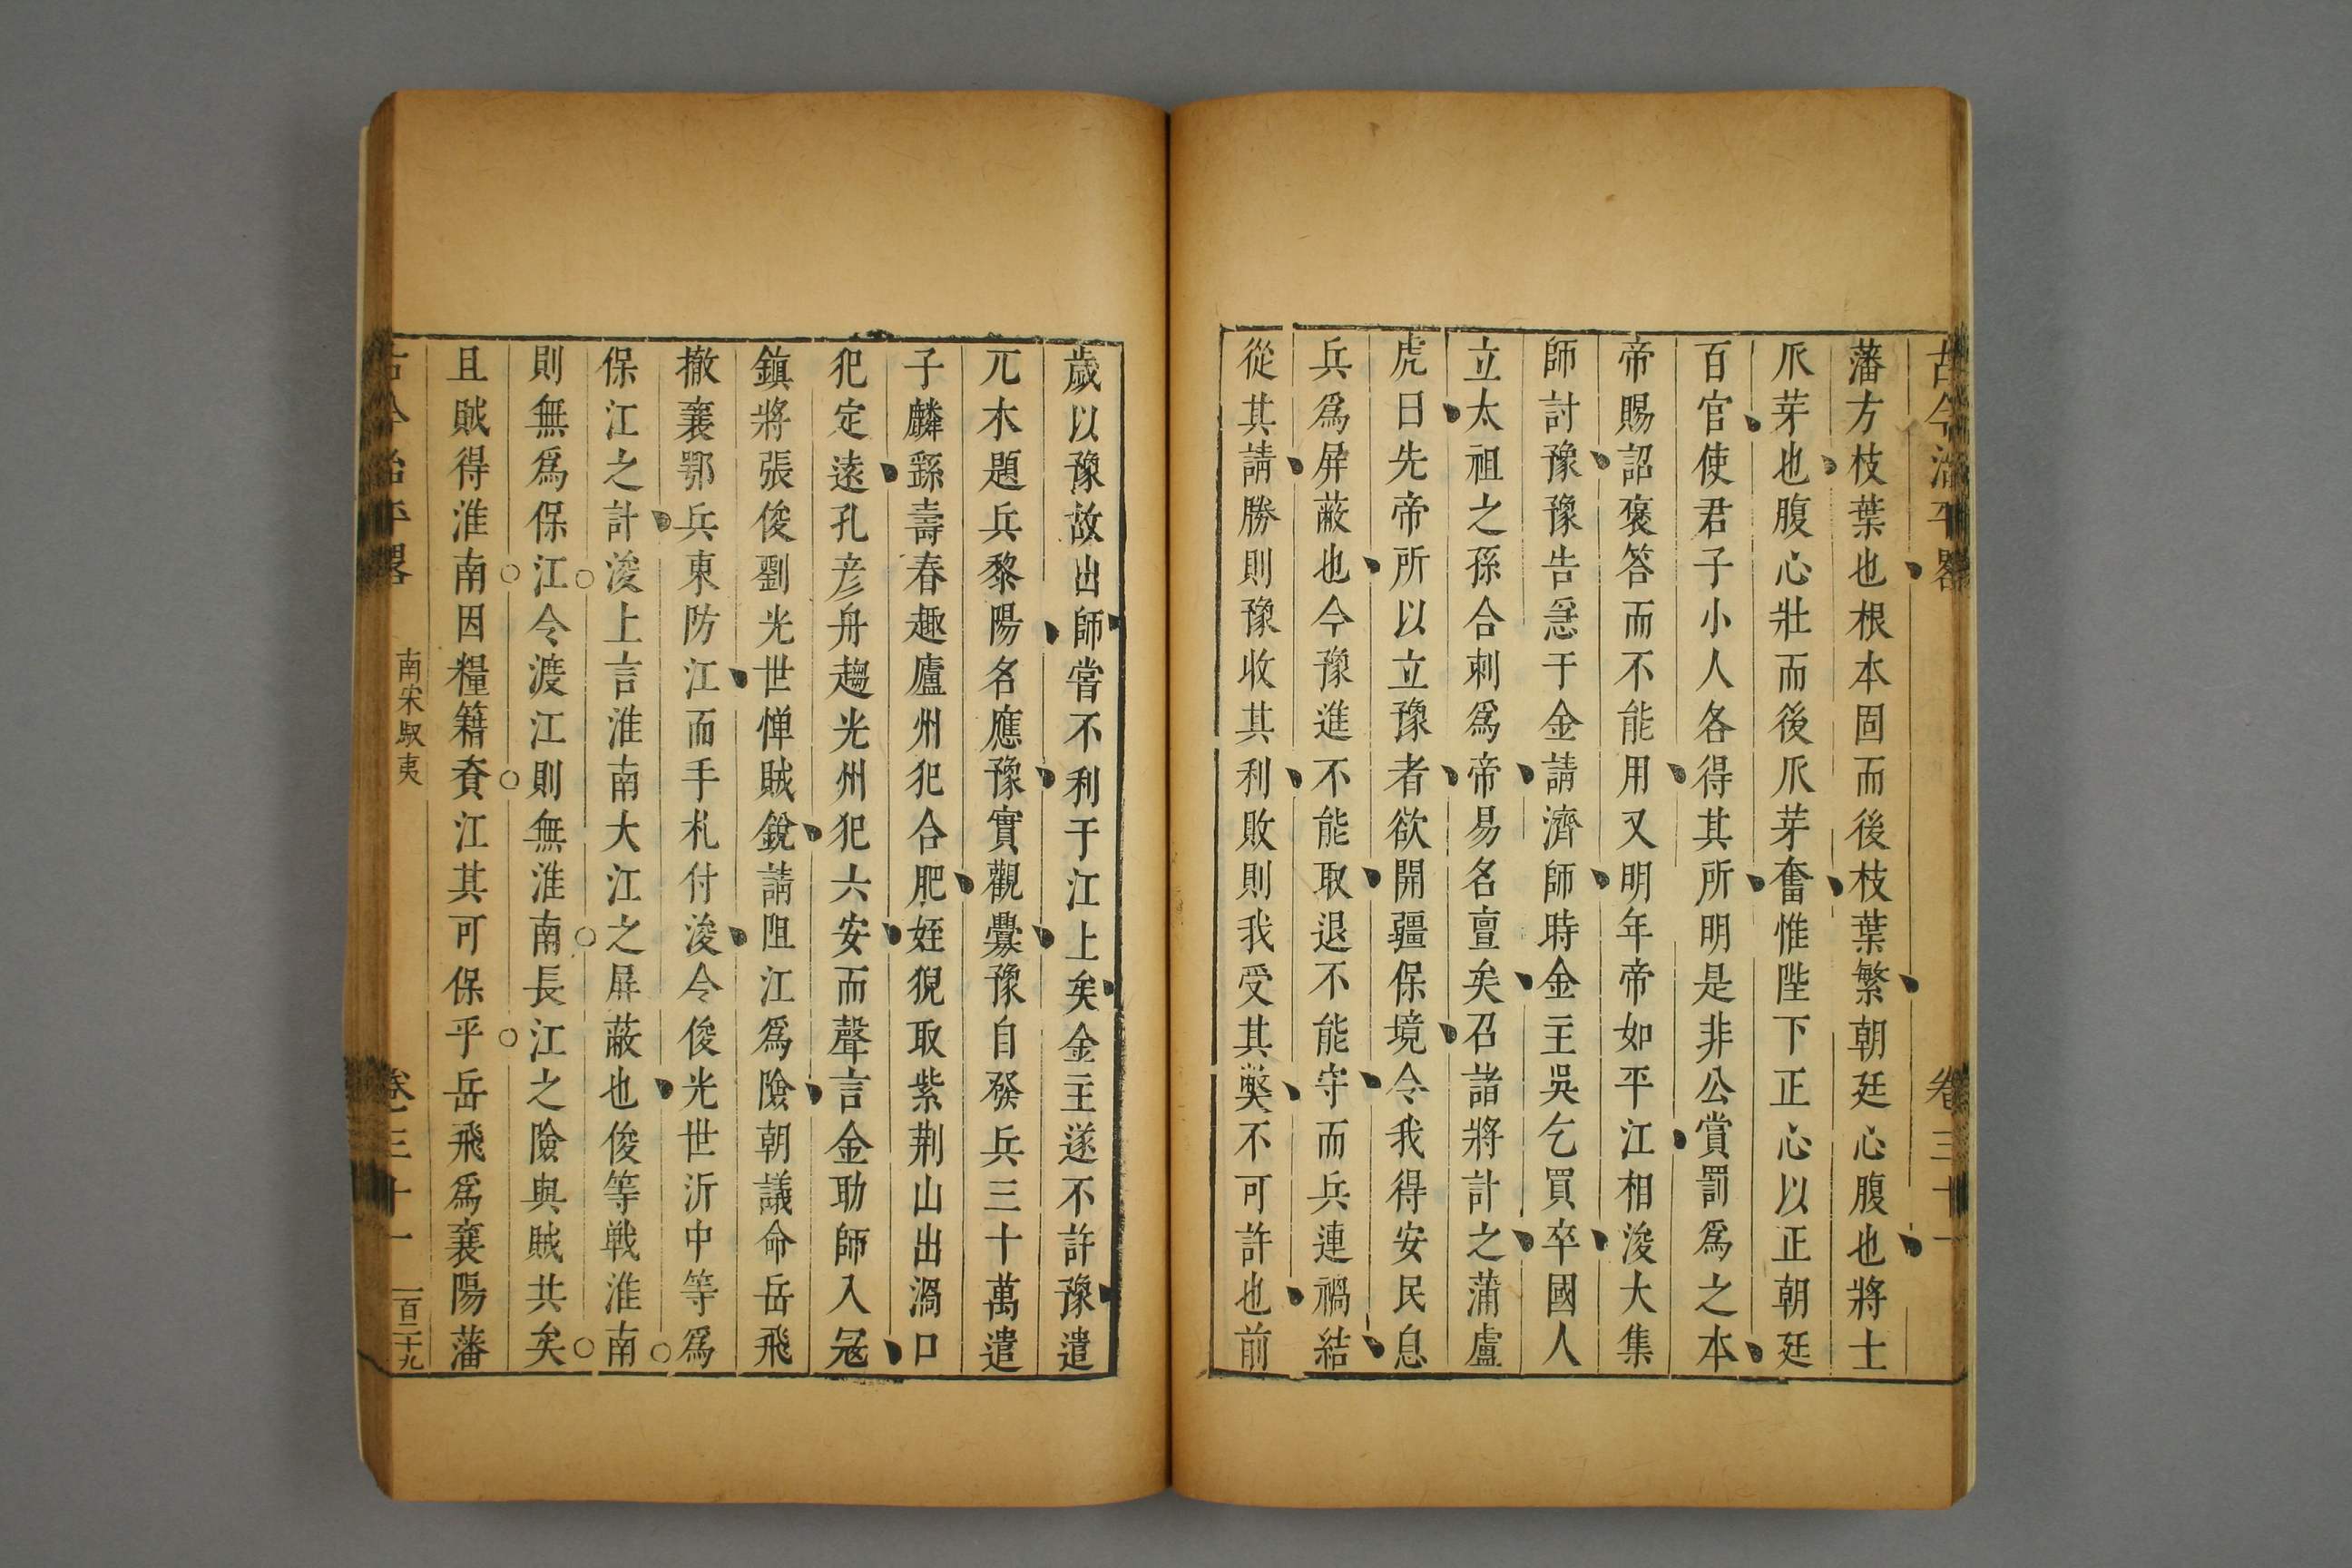 古今治平畧 卷三十一
藩方枝葉也根本固而後枝葉繁朝廷心腹也將士
爪芽也腹心壯而後爪芽奮惟陛下正心以正朝廷
百官使君子小人各得其所明是非公賞罰爲之本
帝賜詔褒答而不能用又明年帝如平江相浚大集
師討豫豫告急于金請濟師時金主吳乞買卒國人
立太祖之孫合剌爲帝易名亶矣召諸將計之蒲盧
虎曰先帝所以立豫者欲開疆保境令我得安民息
兵爲屏蔽也今豫進不能取退不能守而兵連禍結
從其請勝則豫收其利敗則我受其獘不可許也前
歲以豫故出師嘗不利于江上矣金主遂不許豫遣
兀木題兵黎陽名應豫實觀釁豫自發兵三十萬遣
子麟繇壽春趣廬州犯合肥姪猊取紫荆山出渦口
犯定遠孔彦舟趨光州犯六安而聲言金助師入冦
鎮將張俊劉光世惮賊銳請阻江爲險朝議命岳飛
撤襄鄂兵東防江而手札付浚令俊光世沂中等爲
保江之計浚上言淮南大江之屏蔽也俊等戰淮南
則無爲保江令渡江則無淮南長江之險與賊共矣
且賊得淮南因糧籍資江其可保乎岳飛爲襄陽藩
古今治平畧 南宋馭夷 卷三十一 一百二十九